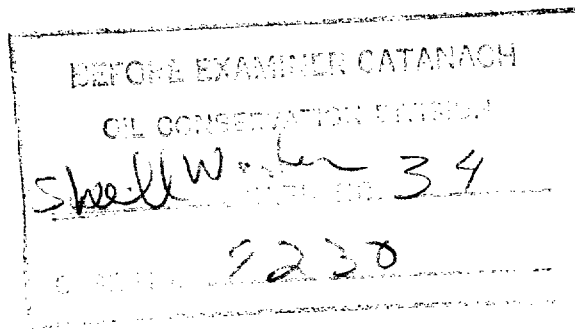 BEFORE EXAMINER CATANACH
OIL CONSERVATION DIVISION
Shell 34
CASE NO. 9230